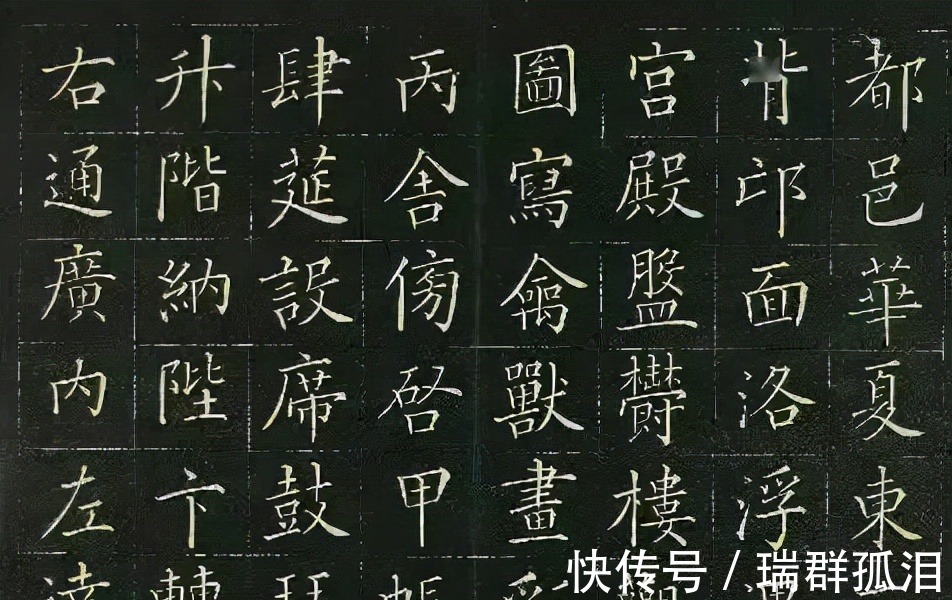 都邑華夏東
背邙面洛浮
宫殿盤欝樓
圖寫禽獸畫
丙舎傍啓甲
肆筵設席鼓
升階納陛卞
右通廣内左
快传号 / 瑞群孤泪